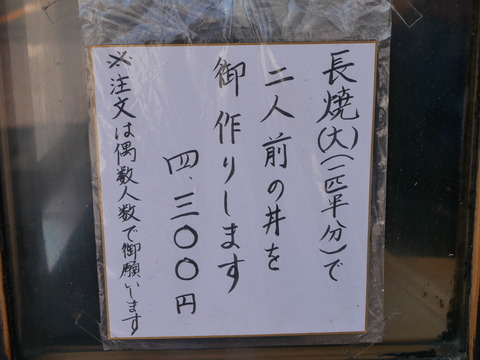 長焼(大)(一匹半分)で
二人前の丼を
御作りします
四、三〇〇円
※注文は偶数人数で御願いします